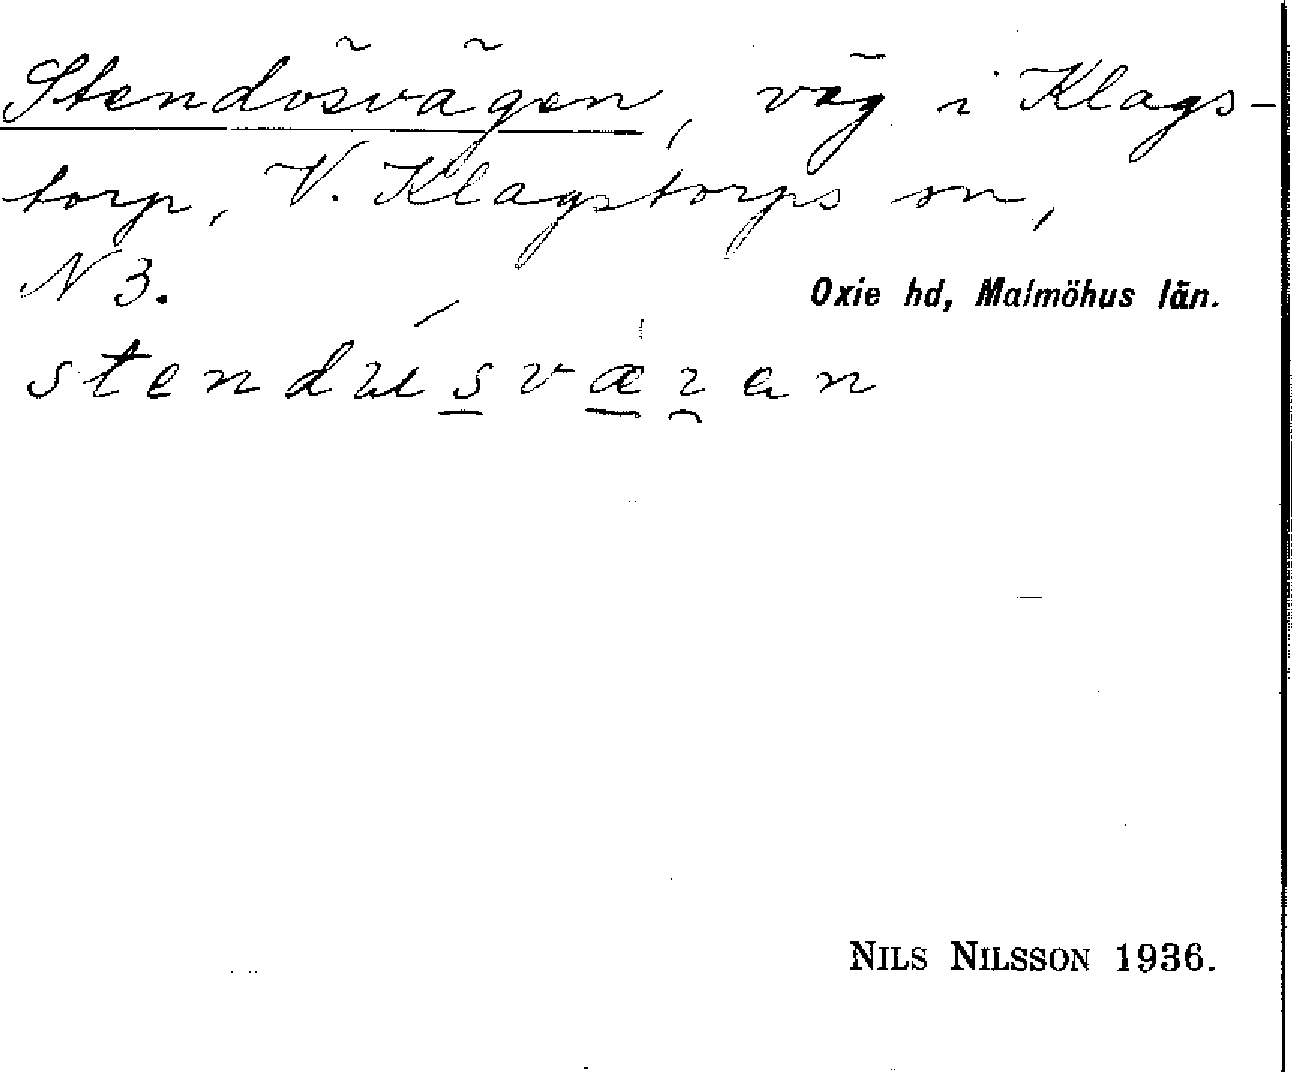 Stendösvägen, väg i Klags-
torp, V. Klagstorps sn,
N 3.
Oxie hd, Malmöhus län.
stendusværan
NILS NILSSON 1936.